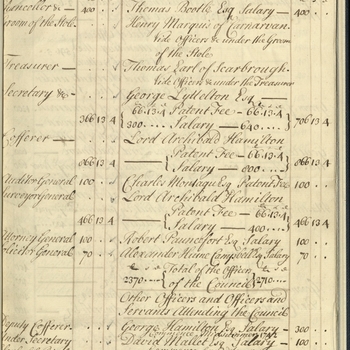 Chancellor & — 400 . . Thomas Bootle Esq Salary — 400 . .
Groom of the Stole Henry Marquis of Carnarvan
Vide Officers & under the Groom
of the Stole
Treasurer — Thomas Earl of Scarbrough
Vide Officers & under the Treasurer
Secretary &c George Lyttelton Esq —
366 13 4 66.13.4 Patent Fee — 66.13.4 706 13 4
300 . . Salary — 640 . .
Cofferer — Lord Archibald Hamilton
866 13 4 Patent Fee — 66.13.4 866 13 4
Salary — 800 . .
Auditor General 100 . . Charles Montagu Esq Patent Fee 100 . .
Surveyor General Lord Archibald Hamilton
466 13 4 Patent Fee — 66.13.4 466 13 4
Salary — 400 . .
Attorney General 100 . . Robert Pauncefort Esq Salary 100 . .
Solicitor General 70 . . Alexander Hume Campbell Esq Salary 70 . .
Total of the Officers
2370 of the Council 2710
Other Officers and Officers and
Servants Attending the Council
Deputy Cofferer George Hamilton Esq Salary — 300 . .
Under Secretary David Mallet Esq Salary — 100